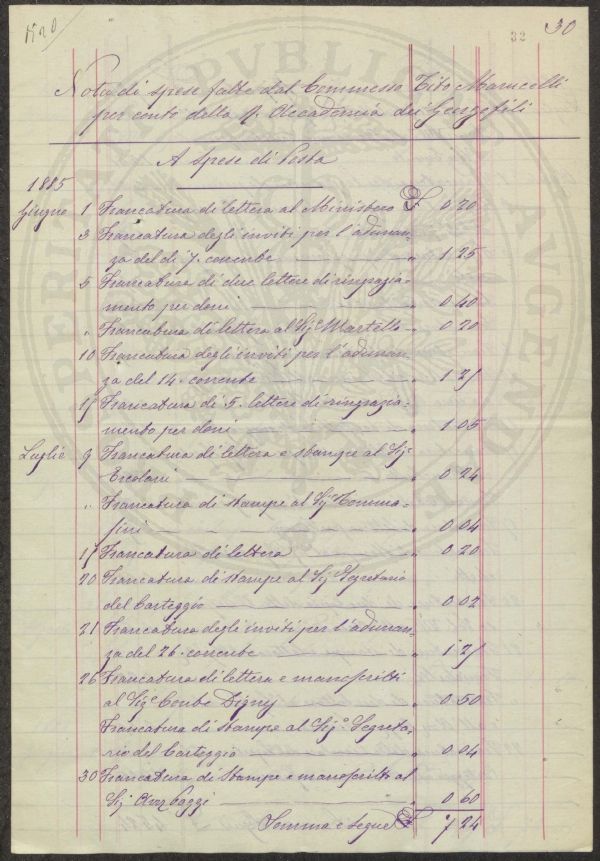 1120
32
30
Nota di spese fatte dal Commesso Tito Marucelli
per conto della R. Accademia dei Georgofili
A spese di Posta
1885
Giugno 1 Francatura di lettera al Ministero £ 0 20
3 Francatura degli inviti per l'adunan=
za del di 7. corrente — " 1 25
5 Francatura di due lettere di ringrazia=
mento per doni — " 0 40
" Francatura di lettera al Sigr Martello — " 0 20
10 Francatura degli inviti per l'adunan=
za del 14. corrente — " 1 25
15 Francatura di 5. lettere di ringrazia=
mento per doni — " 1 05
Luglio 9 Francatura di lettera e stampe al Sigr
Ercolani — " 0 24
" Francatura di stampe al Sigr Tomma=
sini — " 0 04
15 Francatura di lettera — " 0 20
20 Francatura di stampe al Sig Segretario
del Carteggio — " 0 02
21 Francatura degli inviti per l'adunan=
za del 26. corrente — " 1 25
26 Francatura di lettera e manoscritti
al Sigr Conte Digny — " 0 50
Francatura di stampe al Sigr Segreta=
rio del Carteggio — " 0 04
30 Francatura di stampe e manoscritti al
Sig Pazzi — " 0 60
Somma e segue £ 7 24
PVBLICAE
AVGENDAE